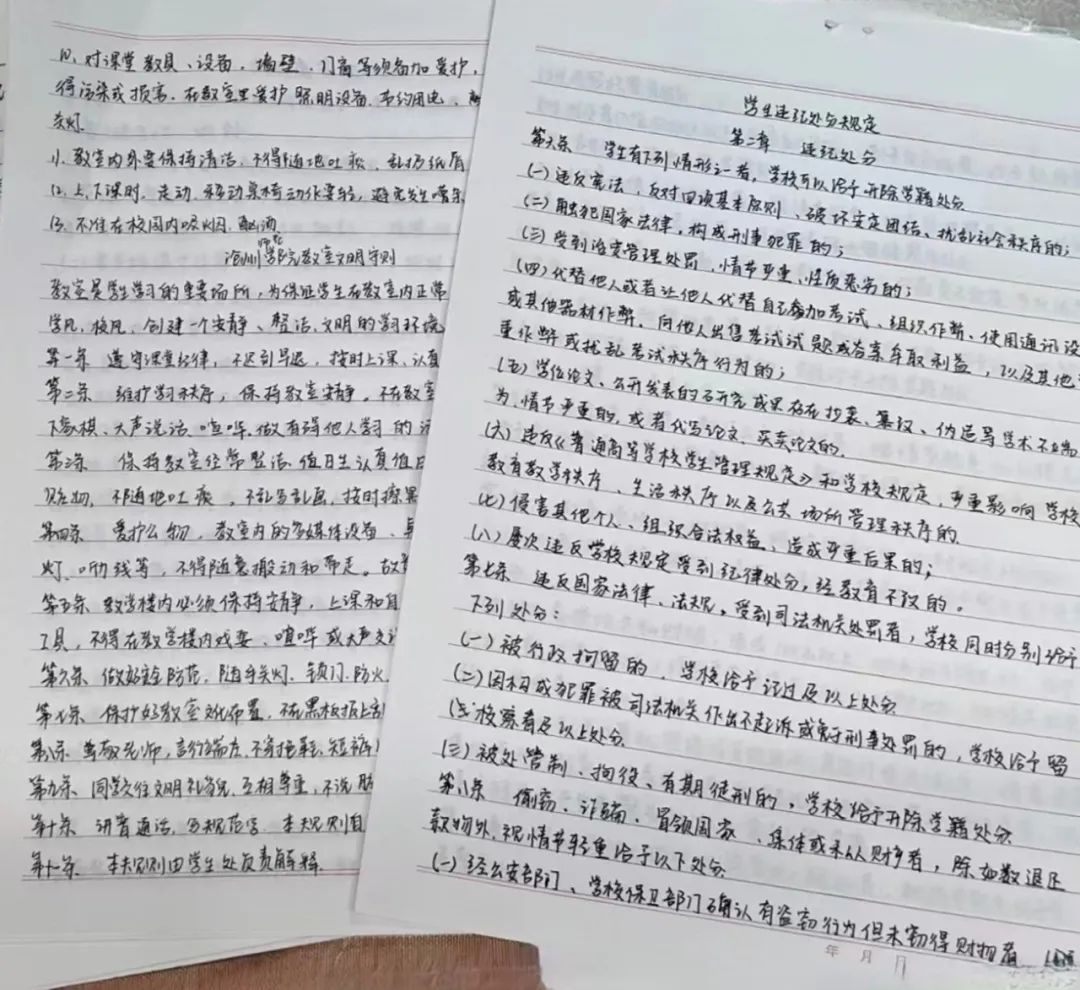 10. 对课堂教具、设备、墙壁、门窗等须备加爱护,
得污染或损害.在教室里爱护照明设备.节约用电、
关灯.
11. 教室内外要保持清洁,不得随地吐痰、乱扔纸屑
12. 上、下课时,走动、移动桌椅动作要轻,避免发生噪杂
13. 不准在校园内吸烟、酗酒
沧州师范学院教室文明守则
教室是学生学习的重要场所,为保证学生在教室内正常
学风、校风,创建一个安静、整洁、文明的学习环境
第一条 遵守课堂纪律,不迟到早退,按时上课、认真
第二条 维护学习秩序,保持教室安静。不在教室
下象棋、大声说话、喧哗、做有碍他人学习的
第三条 保持教室经常整洁.值日生认真值日
贴物,不随地吐痰,不乱写乱画,按时擦黑
第四条 爱护公物,教室内的多媒体设备、
灯、听线等,不得随意搬动和带走。故
第五条 教学楼内必须保持安静,上课和自
工具,不得在教学楼内戏耍、喧哗或大声
第六条 做好安全防范,随手关灯、锁门、防火、
第七条 保护好教室文化布置,不在黑板报上
第八条 尊敬老师,言行端庄,不穿拖鞋、短裤
第九条 同学交往文明礼貌,互相尊重,不说脏
第十条 讲普通话,写规范字,本规则自
第十一条 本规则由学生处负责解释.
学生违纪处分规定
第二章 违纪处分
第六条 学生有下列情形之一者,学校可以给予开除学籍处分
(一)违反宪法、反对四项基本原则、破坏安定团结、扰乱社会秩序的;
(二)触犯国家法律,构成刑事犯罪的;
(三)受到治安管理处罚、情节严重、性质恶劣的;
(四)代替他人或者让他人代替自己参加考试、组织作弊、使用通讯设
或其他器材作弊、向他人出售考试试题或答案牟取利益,以及其他
重作弊或扰乱考试秩序行为的;
(五)学位论文、公开发表的研究成果存在抄袭、篡改、伪造等学术不端
为、情节严重的,或者代写论文、买卖论文的.
(六)违反《普通高等学校学生管理规定》和学校规定,严重影响学校
教育教学秩序、生活秩序以及公共场所管理秩序的
(七)侵害其他个人、组织合法权益,造成严重后果的;
(八)屡次违反学校规定受到纪律处分,经教育不改的。
第七条 违反国家法律、法规,受到司法机关处罚者,学校同时分别给予
下列处分:
(一)被行政拘留的,学校给予记过及以上处分
(二)因构成犯罪被司法机关作出不起诉或免于刑事处罚的,学校给予留
校察看及以上处分
(三)被处管制、拘役、有期徒刑的,学校给予开除学籍处分
第八条 偷窃、诈骗、冒领国家、集体或私人财产者,除如数退还
款物外,视情节轻重给予以下处分
(一)经公安部门、学校保卫部门确认有盗窃行为但未窃得财物者
年 月 日